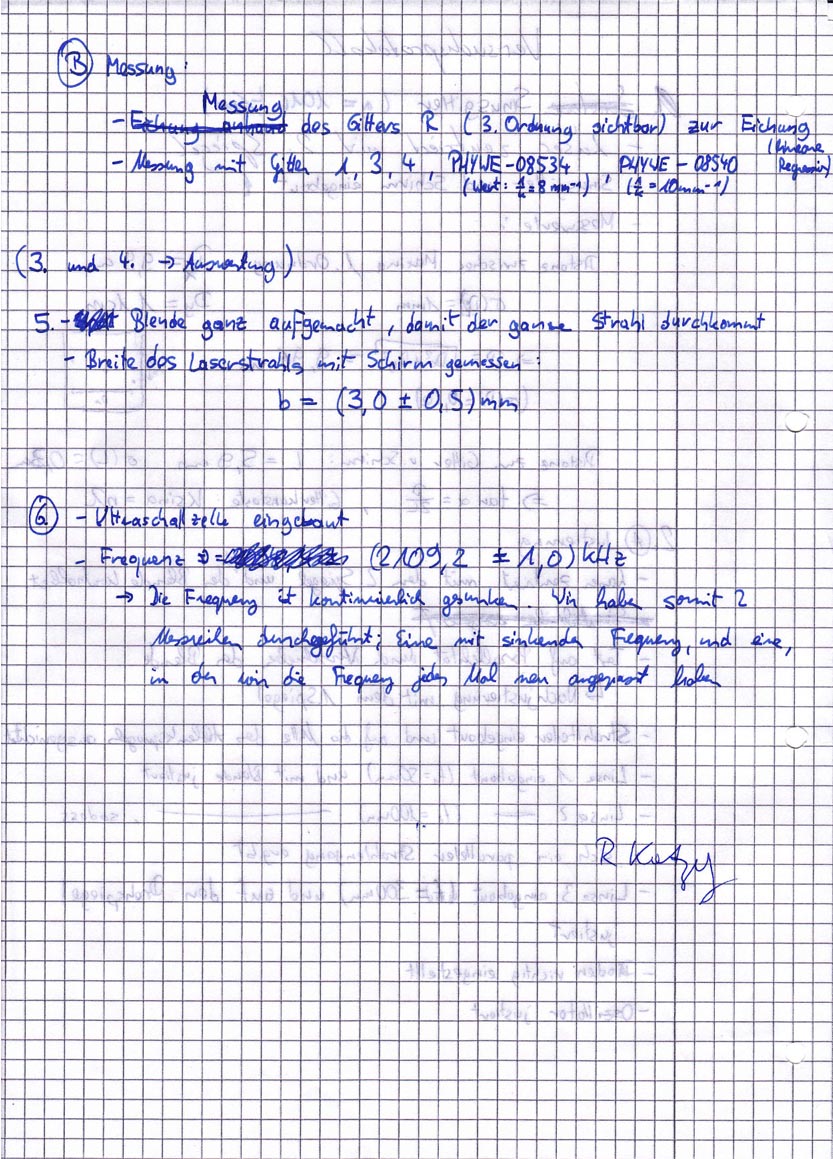 B Messung:
Messung
- Eichung anhand des Gitters R (3. Ordnung sichtbar) zur Eichung (lineare Regression)
- Messung mit Gitter 1, 3, 4, PHYWE-08534, PHYWE-08540
(Wert: 1/k = 8 mm⁻¹) (1/k = 10 mm⁻¹)
(3. und 4. → Auswertung)
5. - Blende ganz aufgemacht, damit der ganze Strahl durchkommt
- Breite des Laserstrahls mit Schirm gemessen:
b = (3,0 ± 0,5) mm
6 - Ultraschallzelle eingebaut
- Frequenz ν = (2109,2 ± 1,0) kHz
→ Die Frequenz ist kontinuierlich gesunken. Wir haben somit 2
Messreihen durchgeführt; Eine mit sinkender Frequenz, und eine,
in der wir die Frequenz jedes Mal neu angepasst haben
R Kotzy